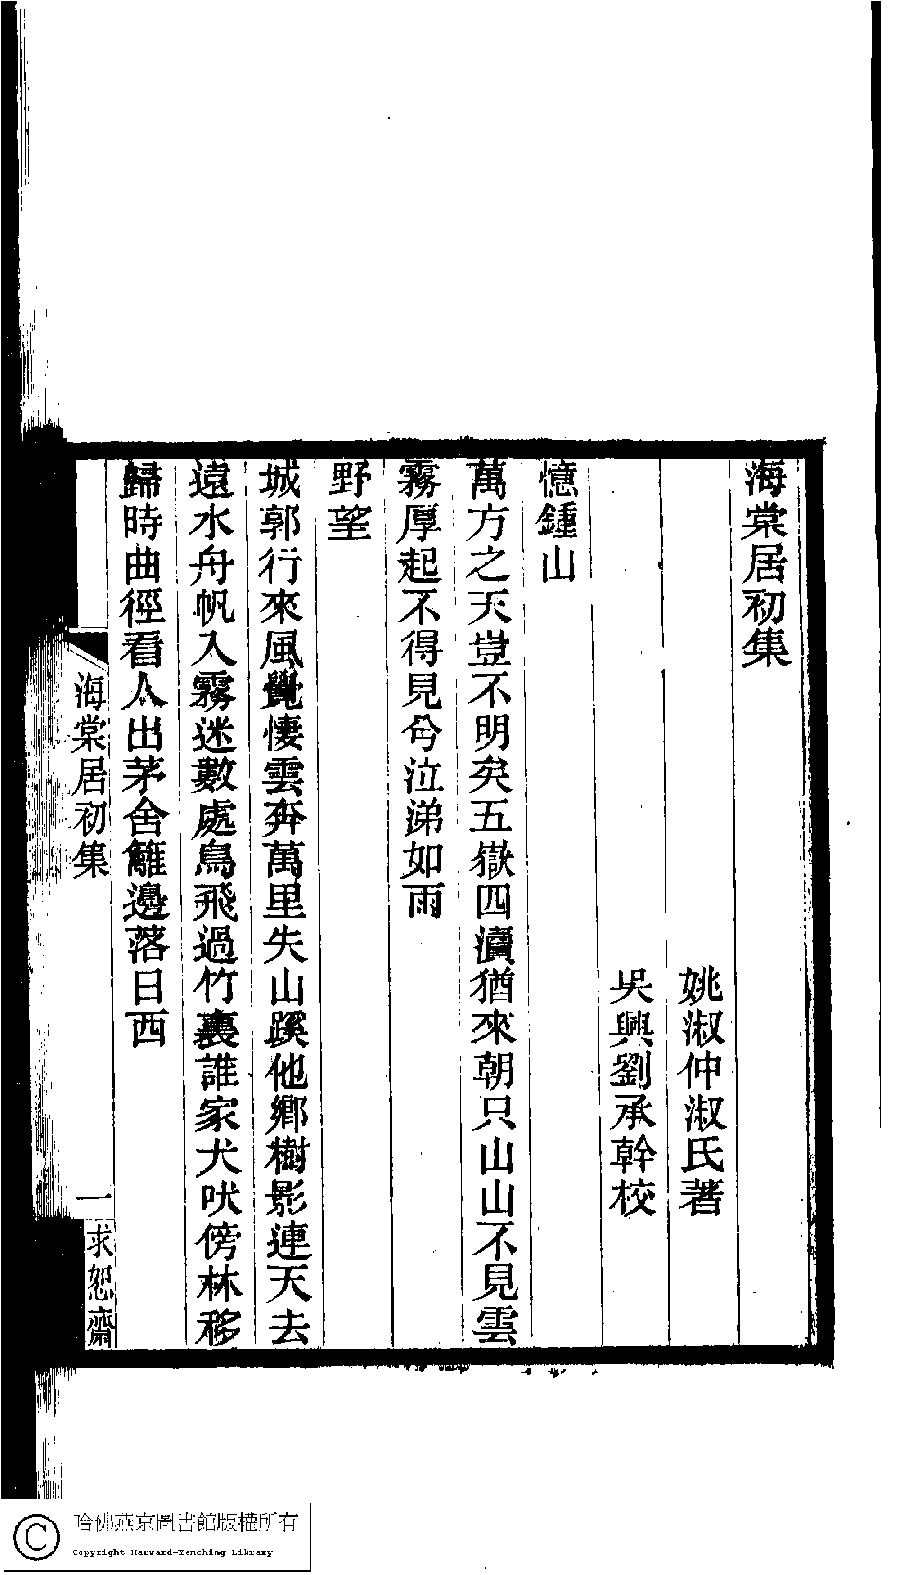 海棠居初集
姚淑仲淑氏著
吳興劉承幹校
憶鍾山
萬方之天豈不明矣五嶽四瀆猶來朝只山山不見雲
霧厚起不得見兮泣涕如雨
野望
城郭行來風覺悽雲奔萬里失山蹊他鄉樹影連天去
遠水舟帆入霧迷數處鳥飛過竹裏誰家犬吠傍林移
歸時曲徑看人出茅舍籬邊落日西
海棠居初集
一
求恕齋
哈佛燕京圖書館版權所有
Copyright Harvard-Yenching Library